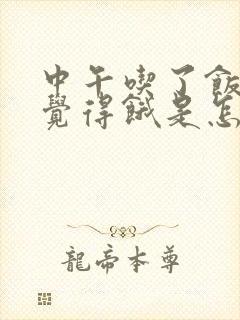 中午喫了飯
覺得餓是怎
龍帝本尊